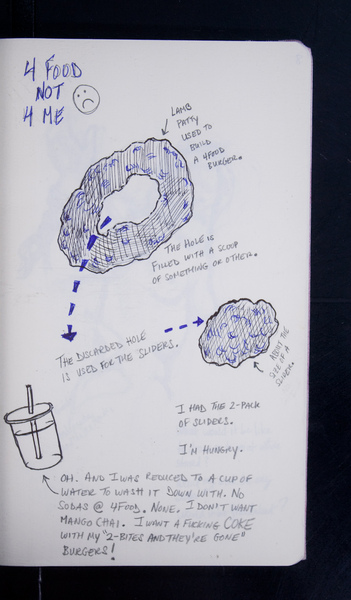 4 FOOD
NOT
4 ME
LAMB
PATTY
USED TO
BUILD
A 4FOOD
BURGER.
THE HOLE IS
FILLED WITH A SCOOP
OF SOMETHING OR OTHER.
THE DISCARDED HOLE
IS USED FOR THE SLIDERS.
ABOUT THE
SIZE OF A
SLIDER.
I HAD THE 2-PACK
OF SLIDERS.
I'M HUNGRY.
OH. AND I WAS REDUCED TO A CUP OF
WATER TO WASH IT DOWN WITH. NO
SODAS @ 4FOOD. NONE. I DON'T WANT
MANGO CHAI. I WANT A FUCKING COKE
WITH MY "2-BITES AND THEY'RE GONE"
BURGERS!